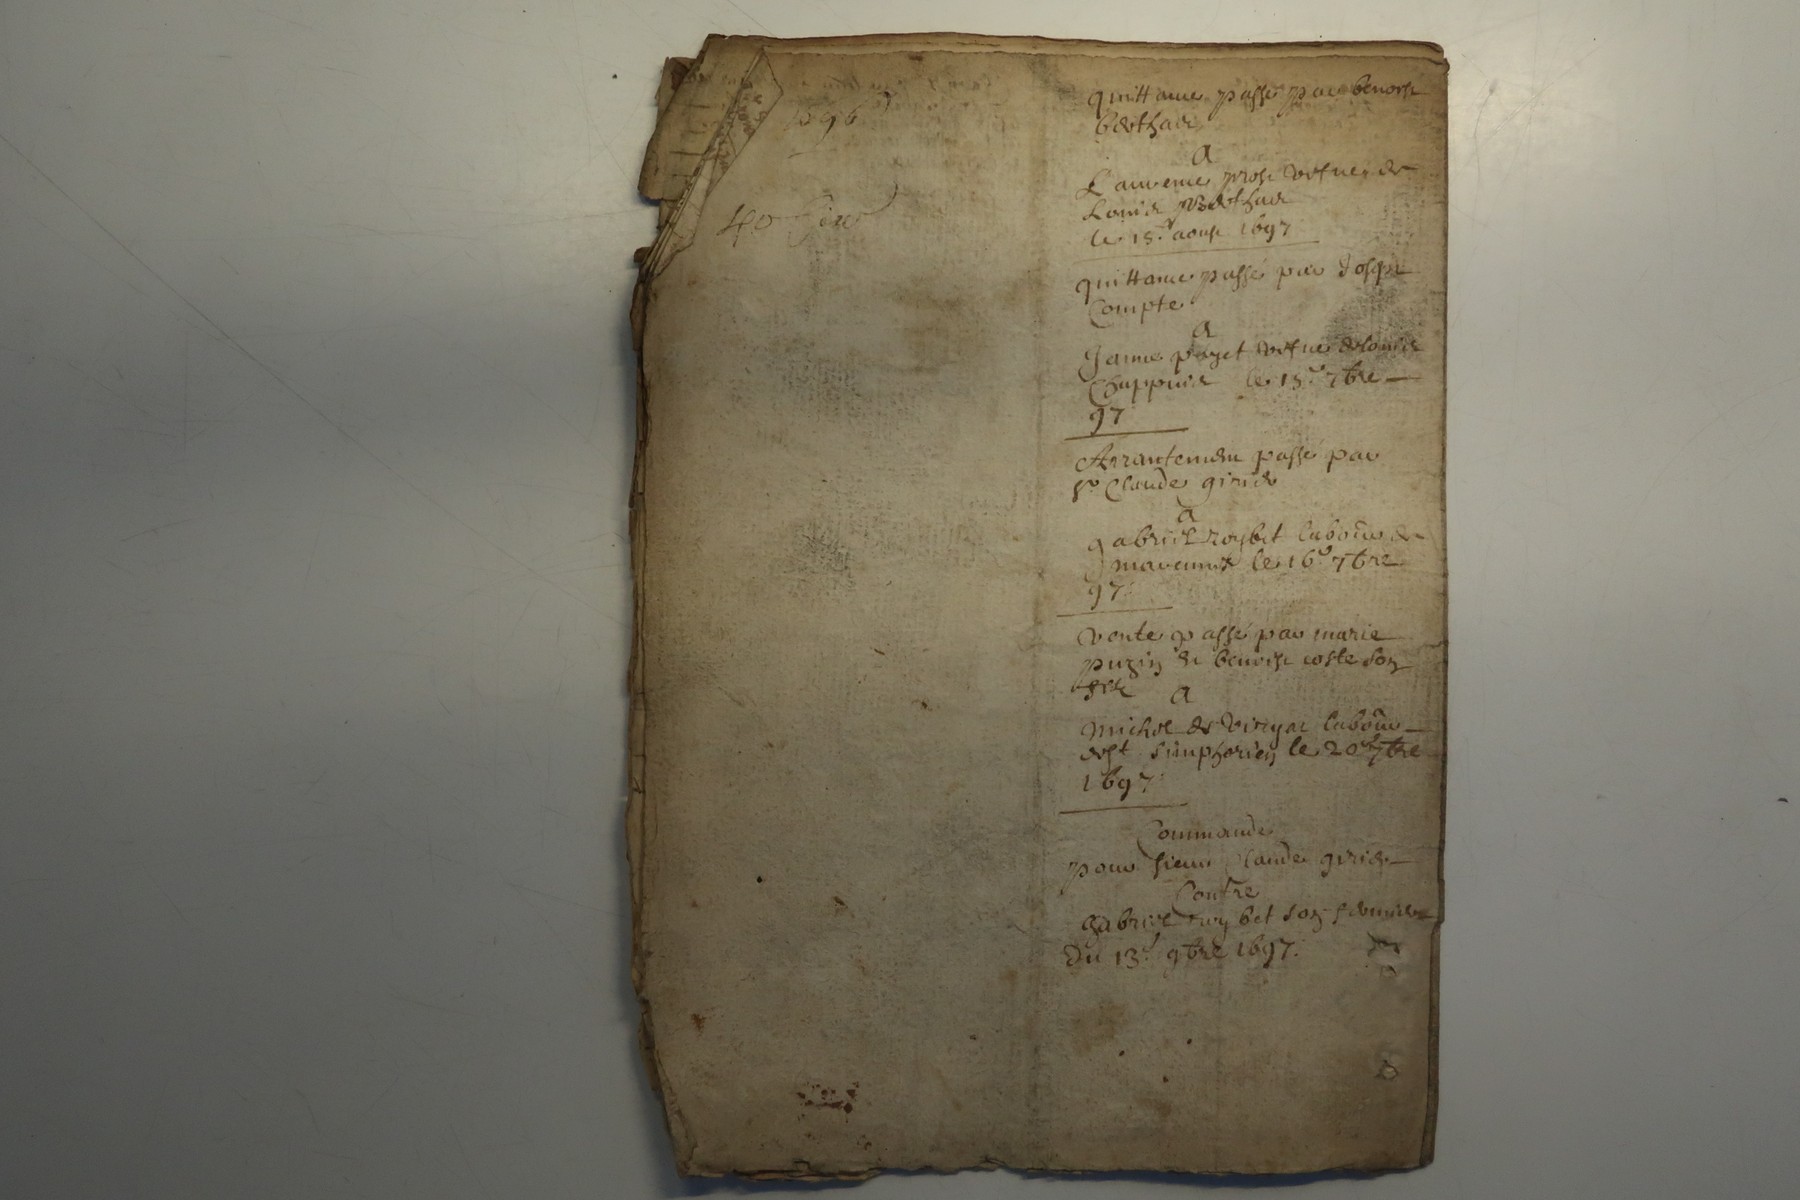 1696
quittance passé par benoist
berthier
a
Laurence vefue de
Louis Berthier
le 15.e aoust 1697
quittance passé par Joseph
Compte
a
Janne payet vefue de louis
Chappuis le 15.e 7bre
97
Arrantement passé par
Sr Claude girier
a
gabriel roybet labour de
le 16.e 7bre
97
vente passé par marie
puzin et benoist coste son
fils a
Michel de labour
de st simphorien le 20e 7bre
1697
Commande
pour sieur Claude girier
Contre
gabriel roybet son fermier
Du 13.e 9bre 1697.